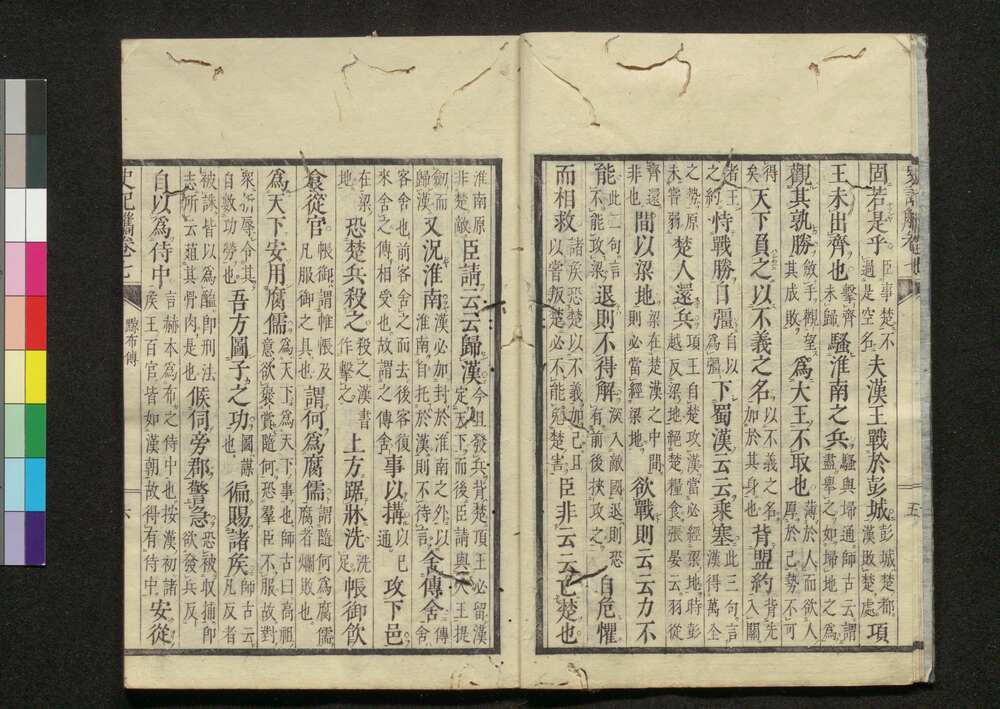 五
固若是乎臣事楚不過是空名夫漢王戰於彭城彭城楚都漢敗楚處項
王未出齊也擊齊未歸騷淮南之兵騷與埽通師古云謂盡擧之如埽地之為
觀其孰勝斂手觀望其成敗為大王不取也薄於人而欲人厚於己勢不可
得矣天下負之以不義之名以不義之名加於其身也背盟約背先入關
者王之約恃戰勝自彊自以為彊下蜀漢云云乘塞此三句言漢得萬全
之勢原未嘗弱楚人還兵項王自楚攻漢當必經梁地時彭越反梁地絕楚糧食張晏云羽從
齊還非也間以梁地梁在楚漢之中間則必當經梁地欲戰則云云力不
能此二句言不能攻梁退則不得解深入敵國退則恐有前後挾攻之自危懼
而相救諸侯恐楚以不義加己且以嘗叛楚必不能免楚害臣非云云亡楚也
淮南原非楚敵臣請云云歸漢今徂發兵背楚項王必留漢定天下而後臣請與大王提
劍而歸漢又況淮南漢必加封於淮南之外以淮南自托於漢則不待言舍傳舍傳舍
客舍也前客舍之而去後客復來舍之傳相受也故謂之傳舍事以搆以已通攻下邑
在梁地恐楚兵殺之殺之漢書作擊之上方踞牀洗洗足帳御飲
食從官帳御謂帷帳及凡服御之具也謂何為腐儒謂隨何為腐儒腐者爛敗也
為天下安用腐儒為天下為天下事也師古曰高祖意欲褒賞隨何恐羣臣不服故對
衆折辱令其自數功勞也吾方圖子之功圖謀也徧賜諸侯師古云凡反者
被誅皆以為醢卽刑法志所云葅其骨肉是也候伺旁郡警急恐被收捕卽欲發兵反
自以為侍中言赫本為布之侍中也按漢初諸侯王百官皆如漢朝故得有侍中安從
史記觿卷七 黥布傳 六